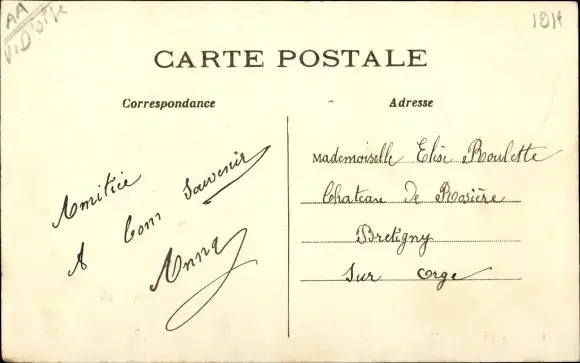 AA
CARTE POSTALE
Correspondance
Adresse
Amitiée
A bon souvenir
Anna
Mademoiselle Elise Roulette
Chateau De Rosière
Bretigny
Sur Orge